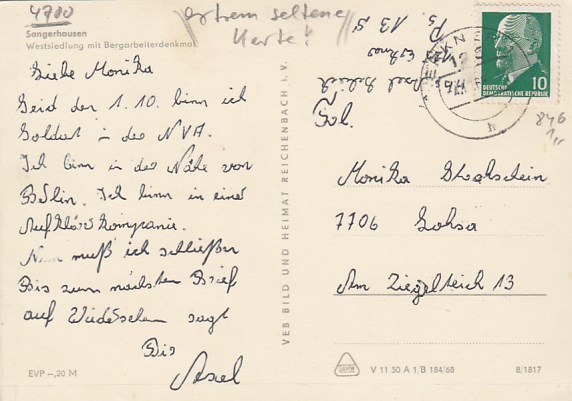 4700
extrem seltene
Karte!
Sangerhausen
Westsiedlung mit Bergarbeiterdenkmal
Liebe Monika
Seid den 1.10. binn ich
Soldat in der NVA.
Ich binn in der Nähe von
Berlin. Ich binn in einer
Aufklärkompanie.
Nun muß ich schließen
Bis zum nächsten Brief
auf Wiedersehen sagt
Dis
Axel
EVP –,20 M
VEB BILD UND HEIMAT REICHENBACH I. V.
Axel
PS 13
DEUTSCHE
DEMOKRATISCHE REPUBLIK
10
846
Frl.
Monika
7706 Lohsa
Am Ziegelteich 13
V 11 50 A 1/B 184/68
8/1817